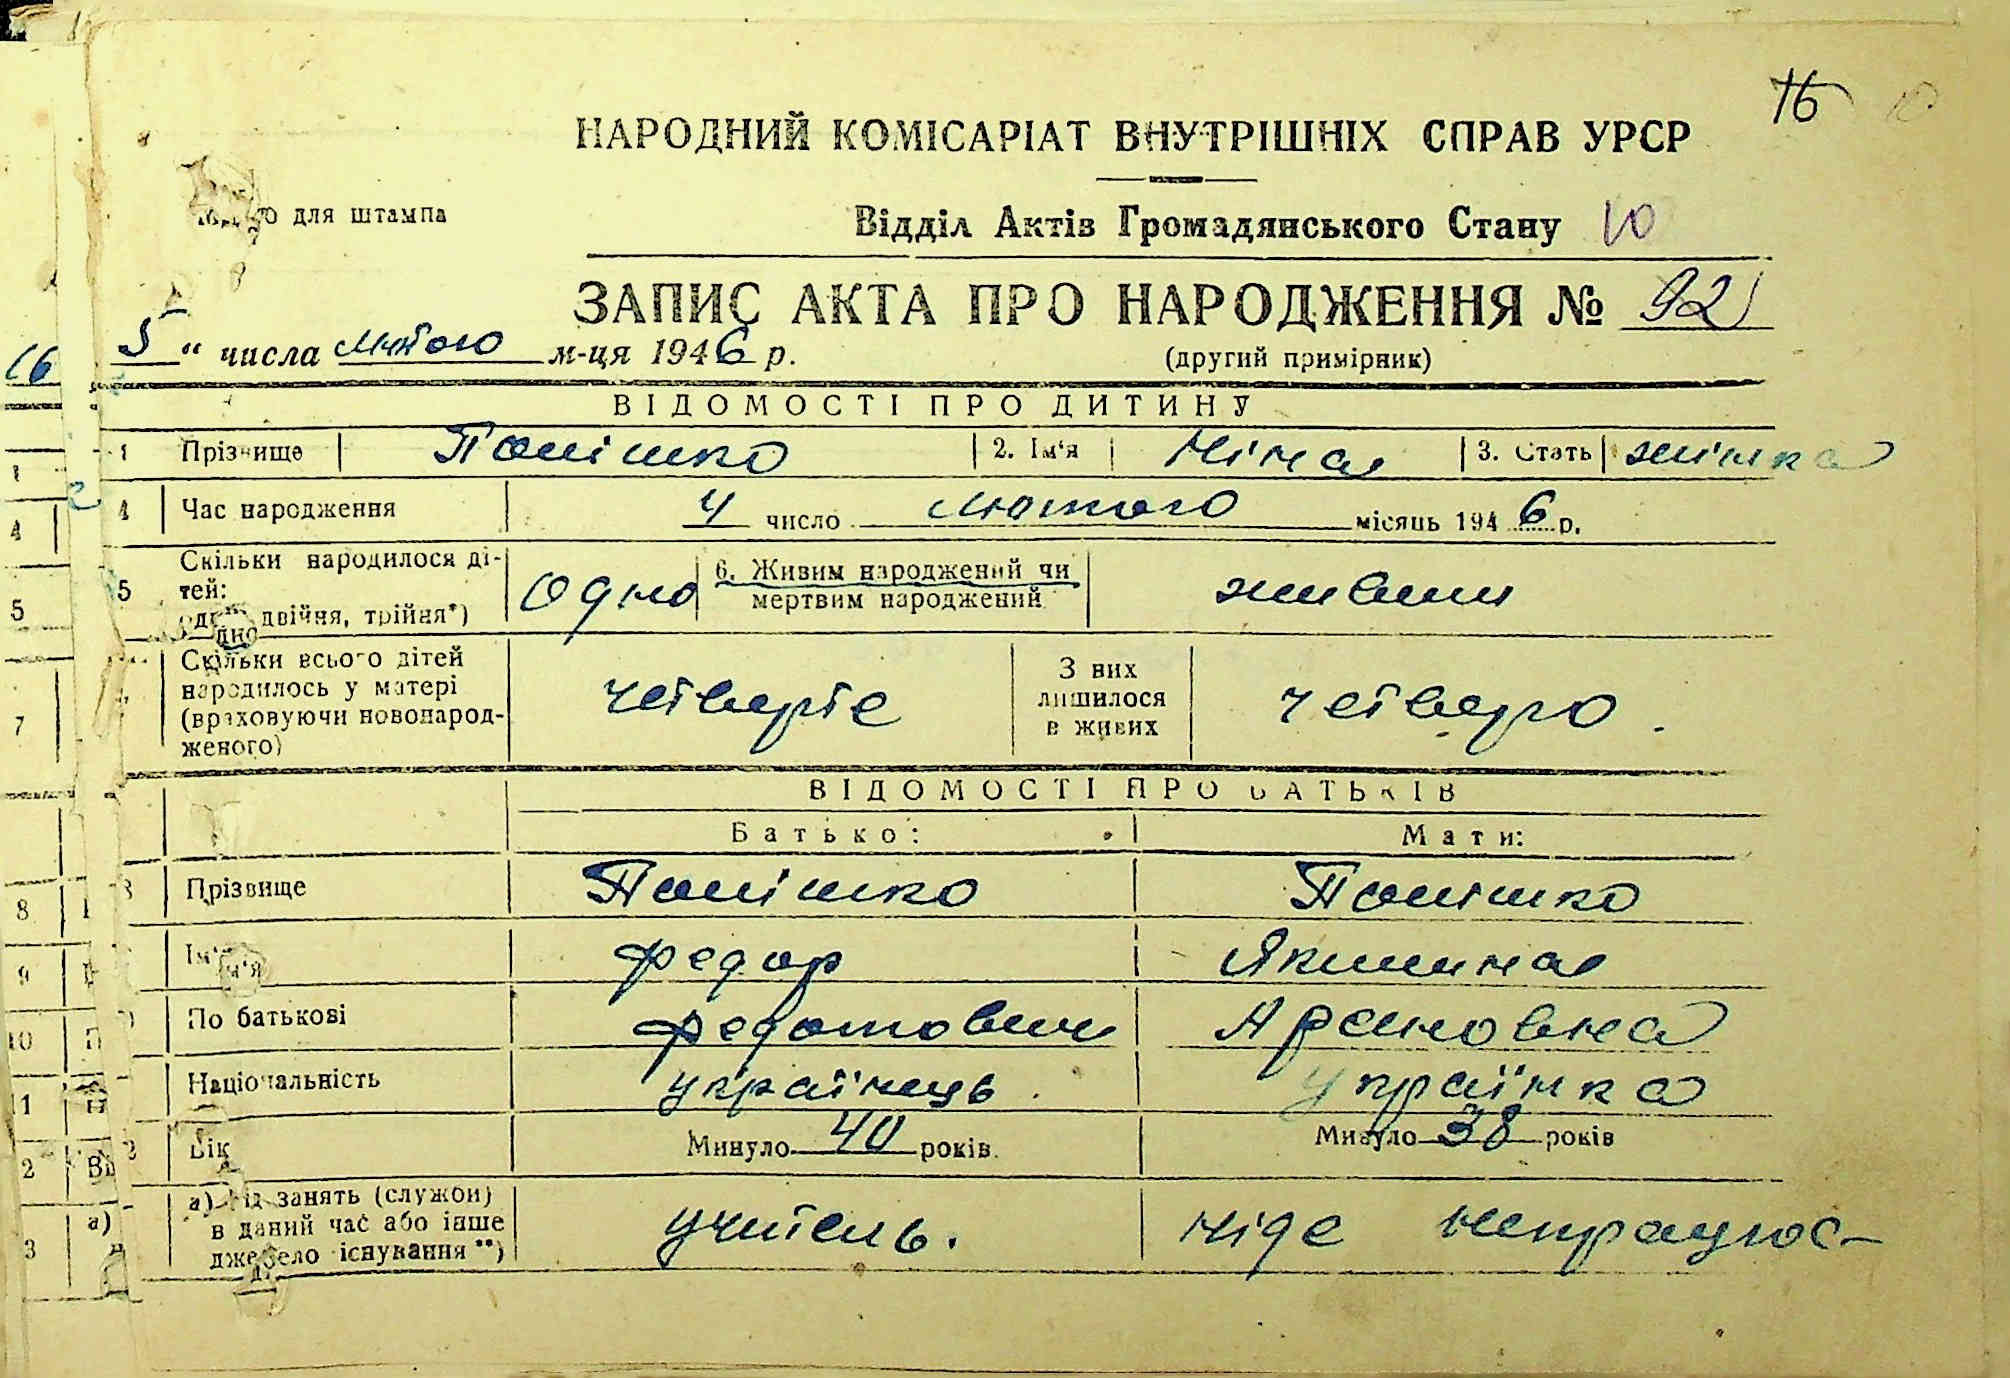 16 10
НАРОДНИЙ КОМІСАРІАТ ВНУТРІШНІХ СПРАВ УРСР
для штампа
Відділ Актів Громадянського Стану 10
ЗАПИС АКТА ПРО НАРОДЖЕННЯ № 92
5 " числа лютого м-ця 1946 р. (другий примірник)
ВІДОМОСТІ ПРО ДИТИНУ
1 Прізвище Панішко 2. Ім'я Ніна 3. Стать жінка
4 Час народження 4 число лютого місяць 1946 р.
5 Скільки народилося ді-
тей:
двійня, трійня*) Одно 6. Живим народжений чи
мертвим народжений живим
Скільки всього дітей
народилось у матері
(враховуючи новонарод-
женого) четверте З них
лишилося
в живих четверо.
ВІДОМОСТІ ПРО БАТЬКІВ
Батько: Мати:
Прізвище Панішко Панішко
Ім'я Федор Якилина
По батькові Федотович
Національність українець українка
Вік Минуло 40 років. Минуло 38 років
а) Рід занять (служби)
в даний час або інше
джерело існування **) учитель. ніде непрацює